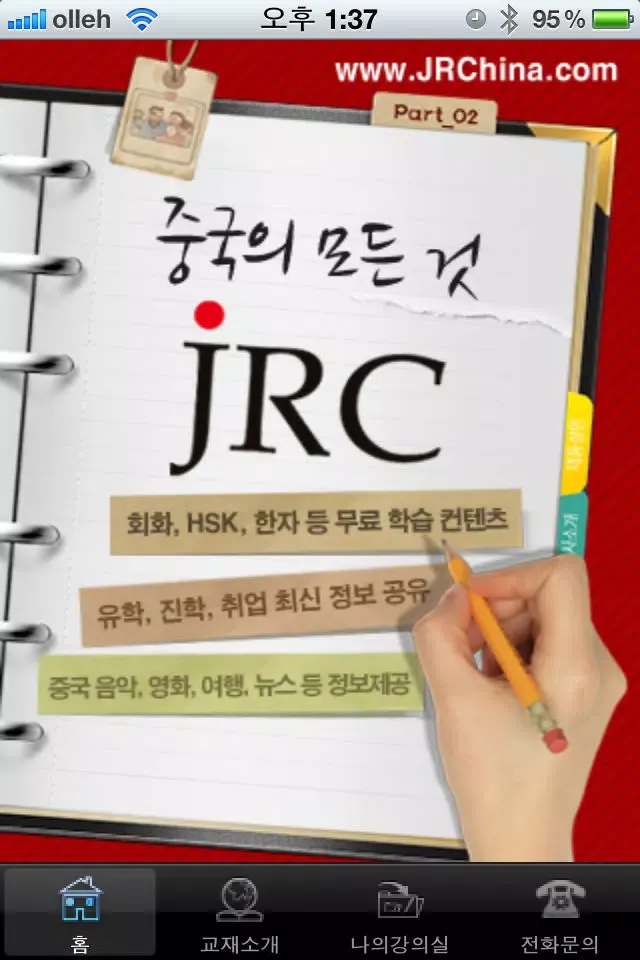 olleh 오후 1:37 95%
www.JRChina.com
Part_02
중국의 모든 것
JRC
회화, HSK, 한자 등 무료 학습 컨텐츠
유학, 진학, 취업 최신 정보 공유
중국 음악, 영화, 여행, 뉴스 등 정보제공
사소개
홈 교재소개 나의강의실 전화문의